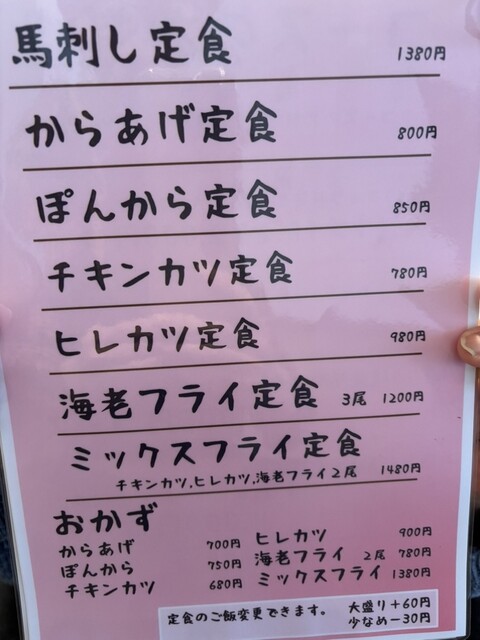 馬刺し定食 1380円
からあげ定食 800円
ぽんから定食 850円
チキンカツ定食 780円
ヒレカツ定食 980円
海老フライ定食 3尾 1200円
ミックスフライ定食
チキンカツ,ヒレカツ,海老フライ2尾 1480円
おかず
からあげ 700円
ぽんから 750円
チキンカツ 680円
ヒレカツ 900円
海老フライ 2尾 780円
ミックスフライ 1380円
定食のご飯変更できます。 大盛り+60円
少なめ-30円